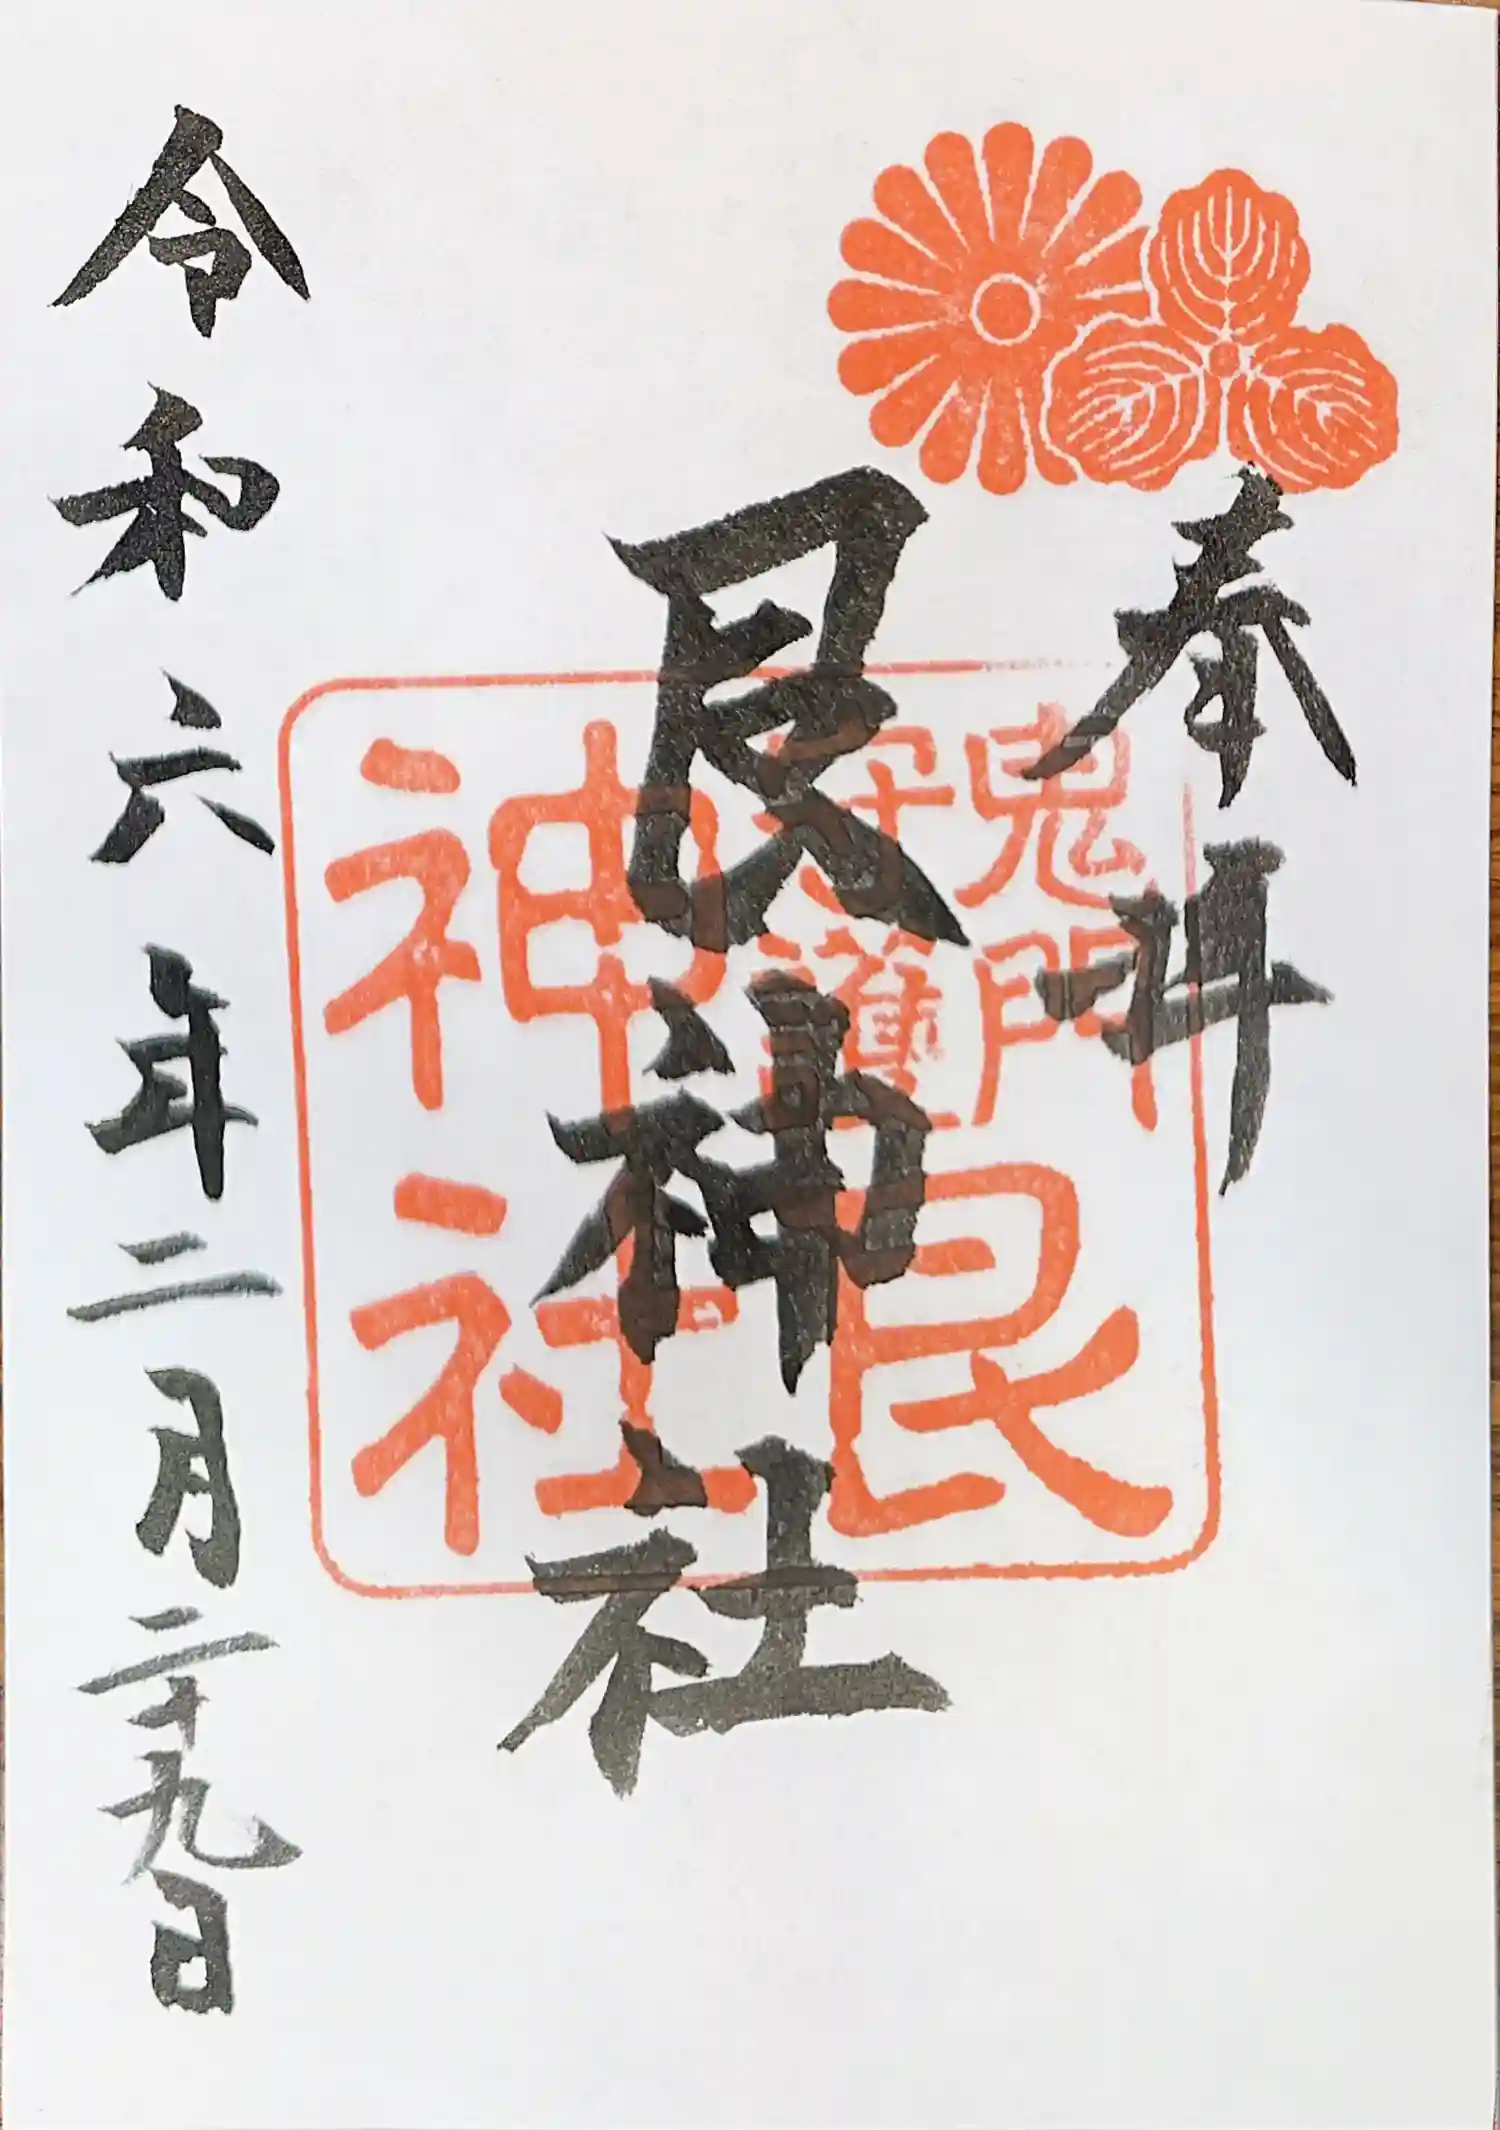 奉拝
艮神社
鬼門
守護
艮
神社
令和六年二月二十九日